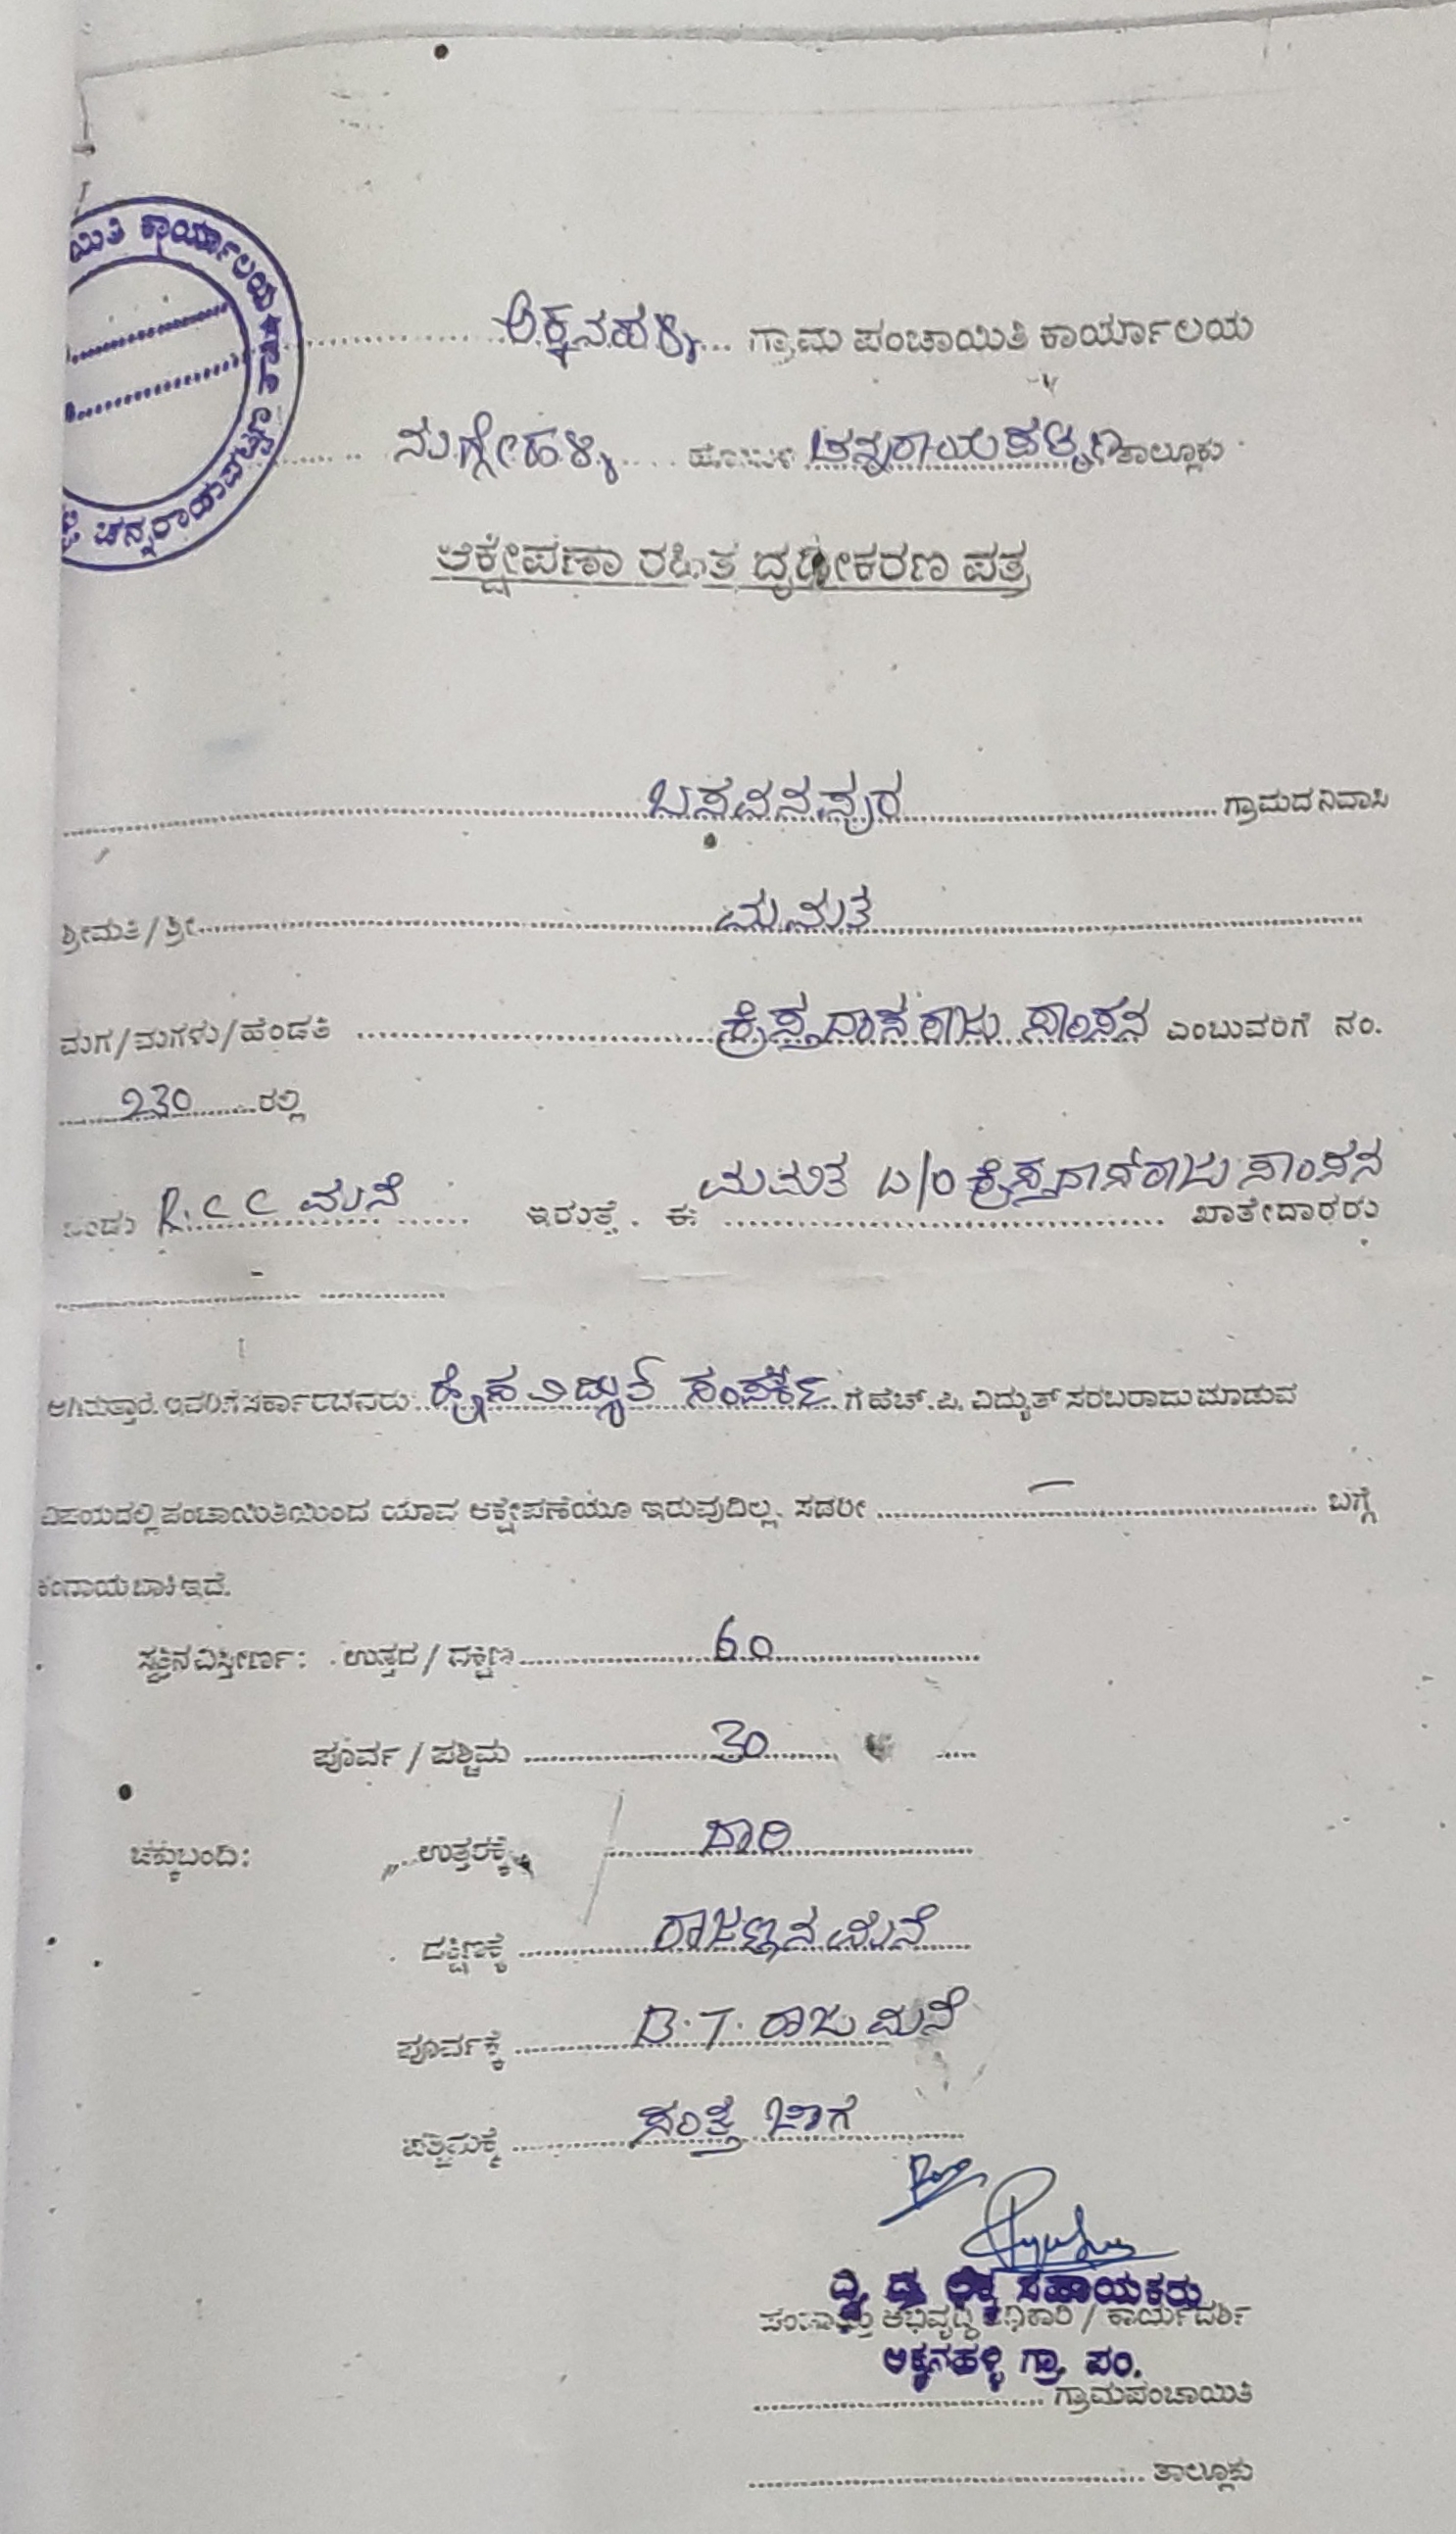 ಯಿತಿ ಕಾರ್ಯಾಲಯ ★
ಚನ್ನರಾಯ
ಅಕ್ಕನಹಳ್ಳಿ ಗ್ರಾಮ ಪಂಚಾಯಿತಿ ಕಾರ್ಯಾಲಯ
ನುಗ್ಗೇಹಳ್ಳಿ ಹೋಬಳಿ ಚನ್ನರಾಯಪಟ್ಟಣ ತಾಲ್ಲೂಕು
ಆಕ್ಷೇಪಣಾ ರಹಿತ ದೃಢೀಕರಣ ಪತ್ರ
ಬಸವನಪುರ ಗ್ರಾಮದ ನಿವಾಸಿ
ಶ್ರೀಮತಿ / ಶ್ರೀ ಮಮತ
ಮಗ / ಮಗಳು / ಹೆಂಡತಿ ಕ್ರೈಸ್ತದಾಸ ರಾಜು ಸಾಂಸನ ಎಂಬುವರಿಗೆ ನಂ.
230 ರಲ್ಲಿ
ಒಂದು R.C C ಮನೆ ಇರುತ್ತೆ. ಈ ಮಮತ D/O ಕ್ರೈಸ್ತದಾಸ್‌ರಾಜು ಸಾಂಸನ ಖಾತೇದಾರರು
ಆಗಿರುತ್ತಾರೆ. ಇವರಿಗೆ ಸರ್ಕಾರದವರು ಗೃಹ ವಿದ್ಯುತ್ ಸಂಪರ್ಕ ಗೆ ಹೆಚ್.ಪಿ. ವಿದ್ಯುತ್ ಸರಬರಾಜು ಮಾಡುವ
ವಿಷಯದಲ್ಲಿ ಪಂಚಾಯಿತಿಯಿಂದ ಯಾವ ಆಕ್ಷೇಪಣೆಯೂ ಇರುವುದಿಲ್ಲ. ಸದರೀ — ಬಗ್ಗೆ
ಕಂದಾಯ ಬಾಕಿ ಇದೆ.
ಸ್ವತ್ತಿನ ವಿಸ್ತೀರ್ಣ: ಉತ್ತರ / ದಕ್ಷಿಣ 60
ಪೂರ್ವ / ಪಶ್ಚಿಮ 30
ಚಕ್ಕುಬಂದಿ: ಉತ್ತರಕ್ಕೆ ದಾರಿ
ದಕ್ಷಿಣಕ್ಕೆ ರಾಜಣ್ಣನ ಮನೆ
ಪೂರ್ವಕ್ಕೆ B.T. ರಾಜು ಮನೆ
ಪಶ್ಚಿಮಕ್ಕೆ ಸಂತ್ತೆ ಜಾಗ
ದ್ವಿ ದ ಲೆಕ್ಕ ಸಹಾಯಕರು
ಪಂಚಾಯ್ತಿ ಅಭಿವೃದ್ಧಿ ಅಧಿಕಾರಿ / ಕಾರ್ಯದರ್ಶಿ
ಅಕ್ಕನಹಳ್ಳಿ ಗ್ರಾ. ಪಂ.
ಗ್ರಾಮಪಂಚಾಯಿತಿ
ತಾಲ್ಲೂಕು